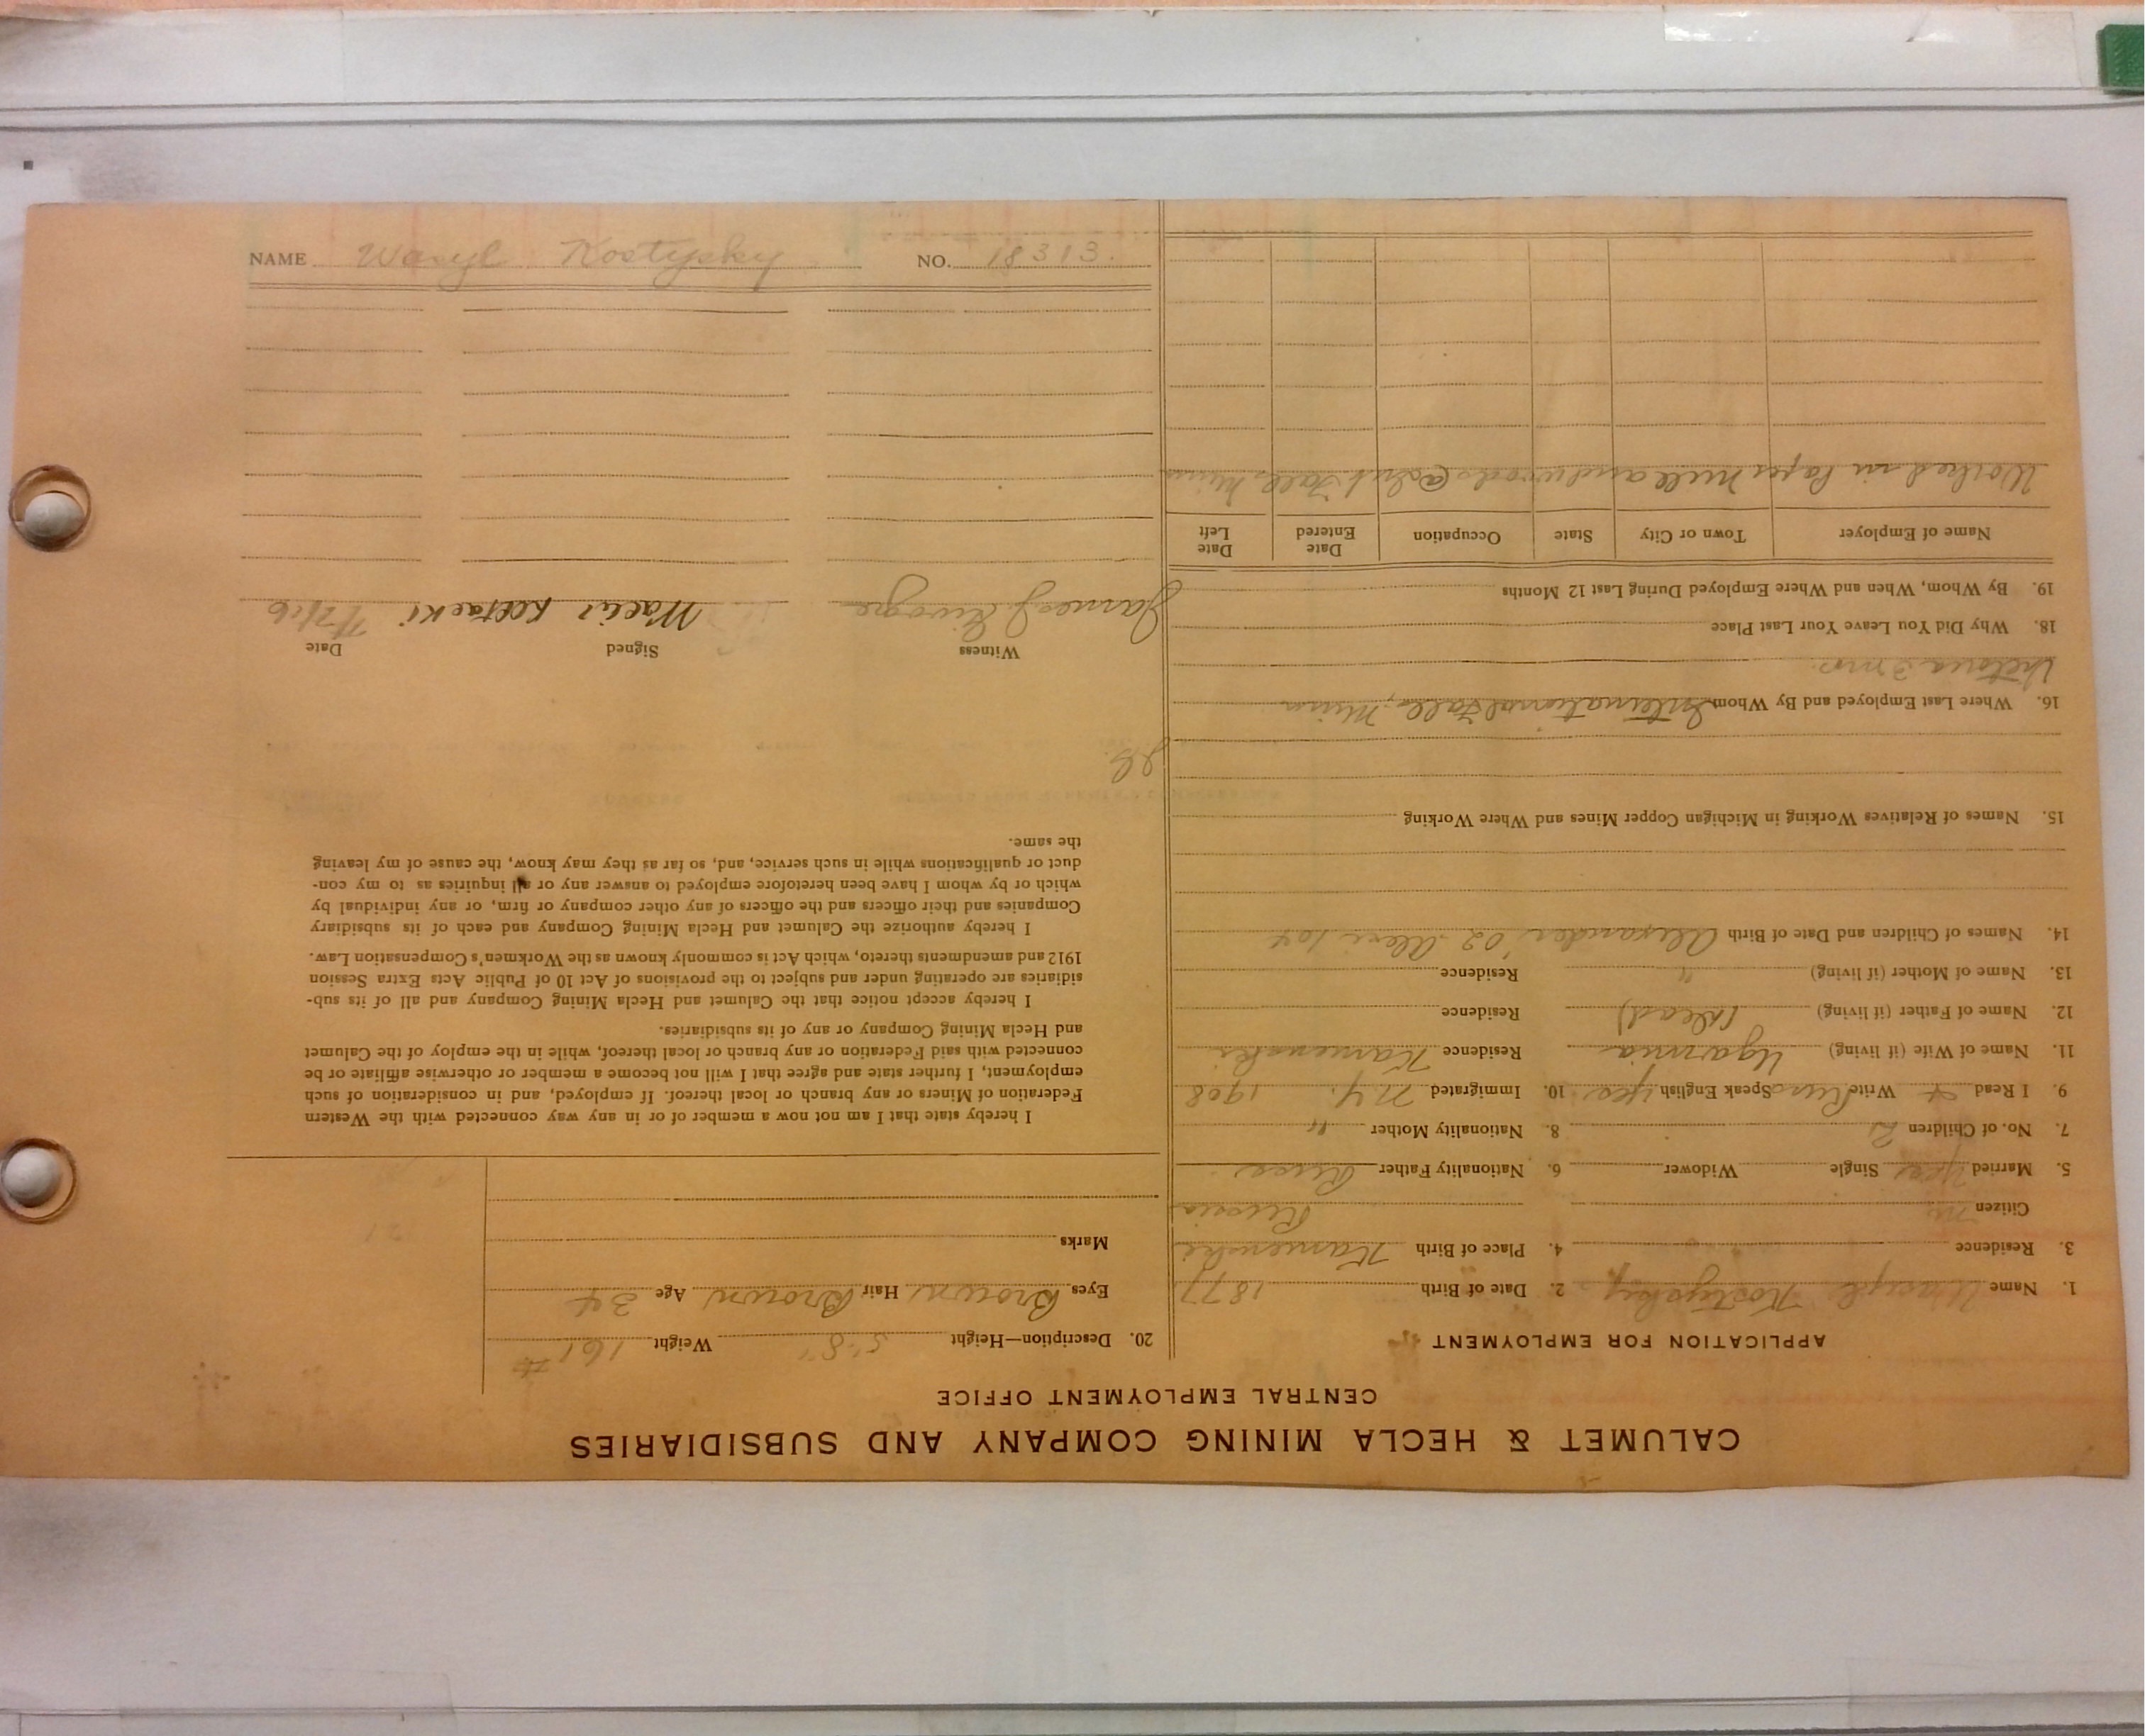 CALUMET & HECLA MINING COMPANY AND SUBSIDIARIES
CENTRAL EMPLOYMENT OFFICE
APPLICATION FOR EMPLOYMENT
1. Name Wasyl Kostysky 2. Date of Birth 1877
3. Residence 4. Place of Birth Kamenski
Citizen no Russia
5. Married yes Single Widower 6. Nationality Father Russ
7. No. of Children 2 8. Nationality Mother "
9. I Read + Write Russ Speak English yes 10. Immigrated N.Y. 1908
11. Name of Wife (if living) Residence Kamenski
12. Name of Father (if living) (dead) Residence
13. Name of Mother (if living) " Residence
14. Names of Children and Date of Birth Alexander '02
15. Names of Relatives Working in Michigan Copper Mines and Where Working
16. Where Last Employed and By Whom International Falls, Minn
Victoria 3 mos.
18. Why Did You Leave Your Last Place
19. By Whom, When and Where Employed During Last 12 Months
Name of Employer Town or City State Occupation Date Entered Date Left
Worked in Paper Mill and woods @ Falls Minn
20. Description—Height 5'8" Weight 161#
Eyes Brown Hair Brown Age 34
Marks
I hereby state that I am not now a member of or in any way connected with the Western
Federation of Miners or any branch or local thereof. If employed, and in consideration of such
employment, I further state and agree that I will not become a member or otherwise affiliate or be
connected with said Federation or any branch or local thereof, while in the employ of the Calumet
and Hecla Mining Company or any of its subsidiaries.
I hereby accept notice that the Calumet and Hecla Mining Company and all of its sub-
sidiaries are operating under and subject to the provisions of Act 10 of Public Acts Extra Session
1912 and amendments thereto, which Act is commonly known as the Workmen's Compensation Law.
I hereby authorize the Calumet and Hecla Mining Company and each of its subsidiary
Companies and their officers and the officers of any other company or firm, or any individual by
which or by whom I have been heretofore employed to answer any or all inquiries as to my con-
duct or qualifications while in such service, and, so far as they may know, the cause of my leaving
the same.
Witness Signed Date
James J.
NAME Wasyl Kostysky NO. 18313.